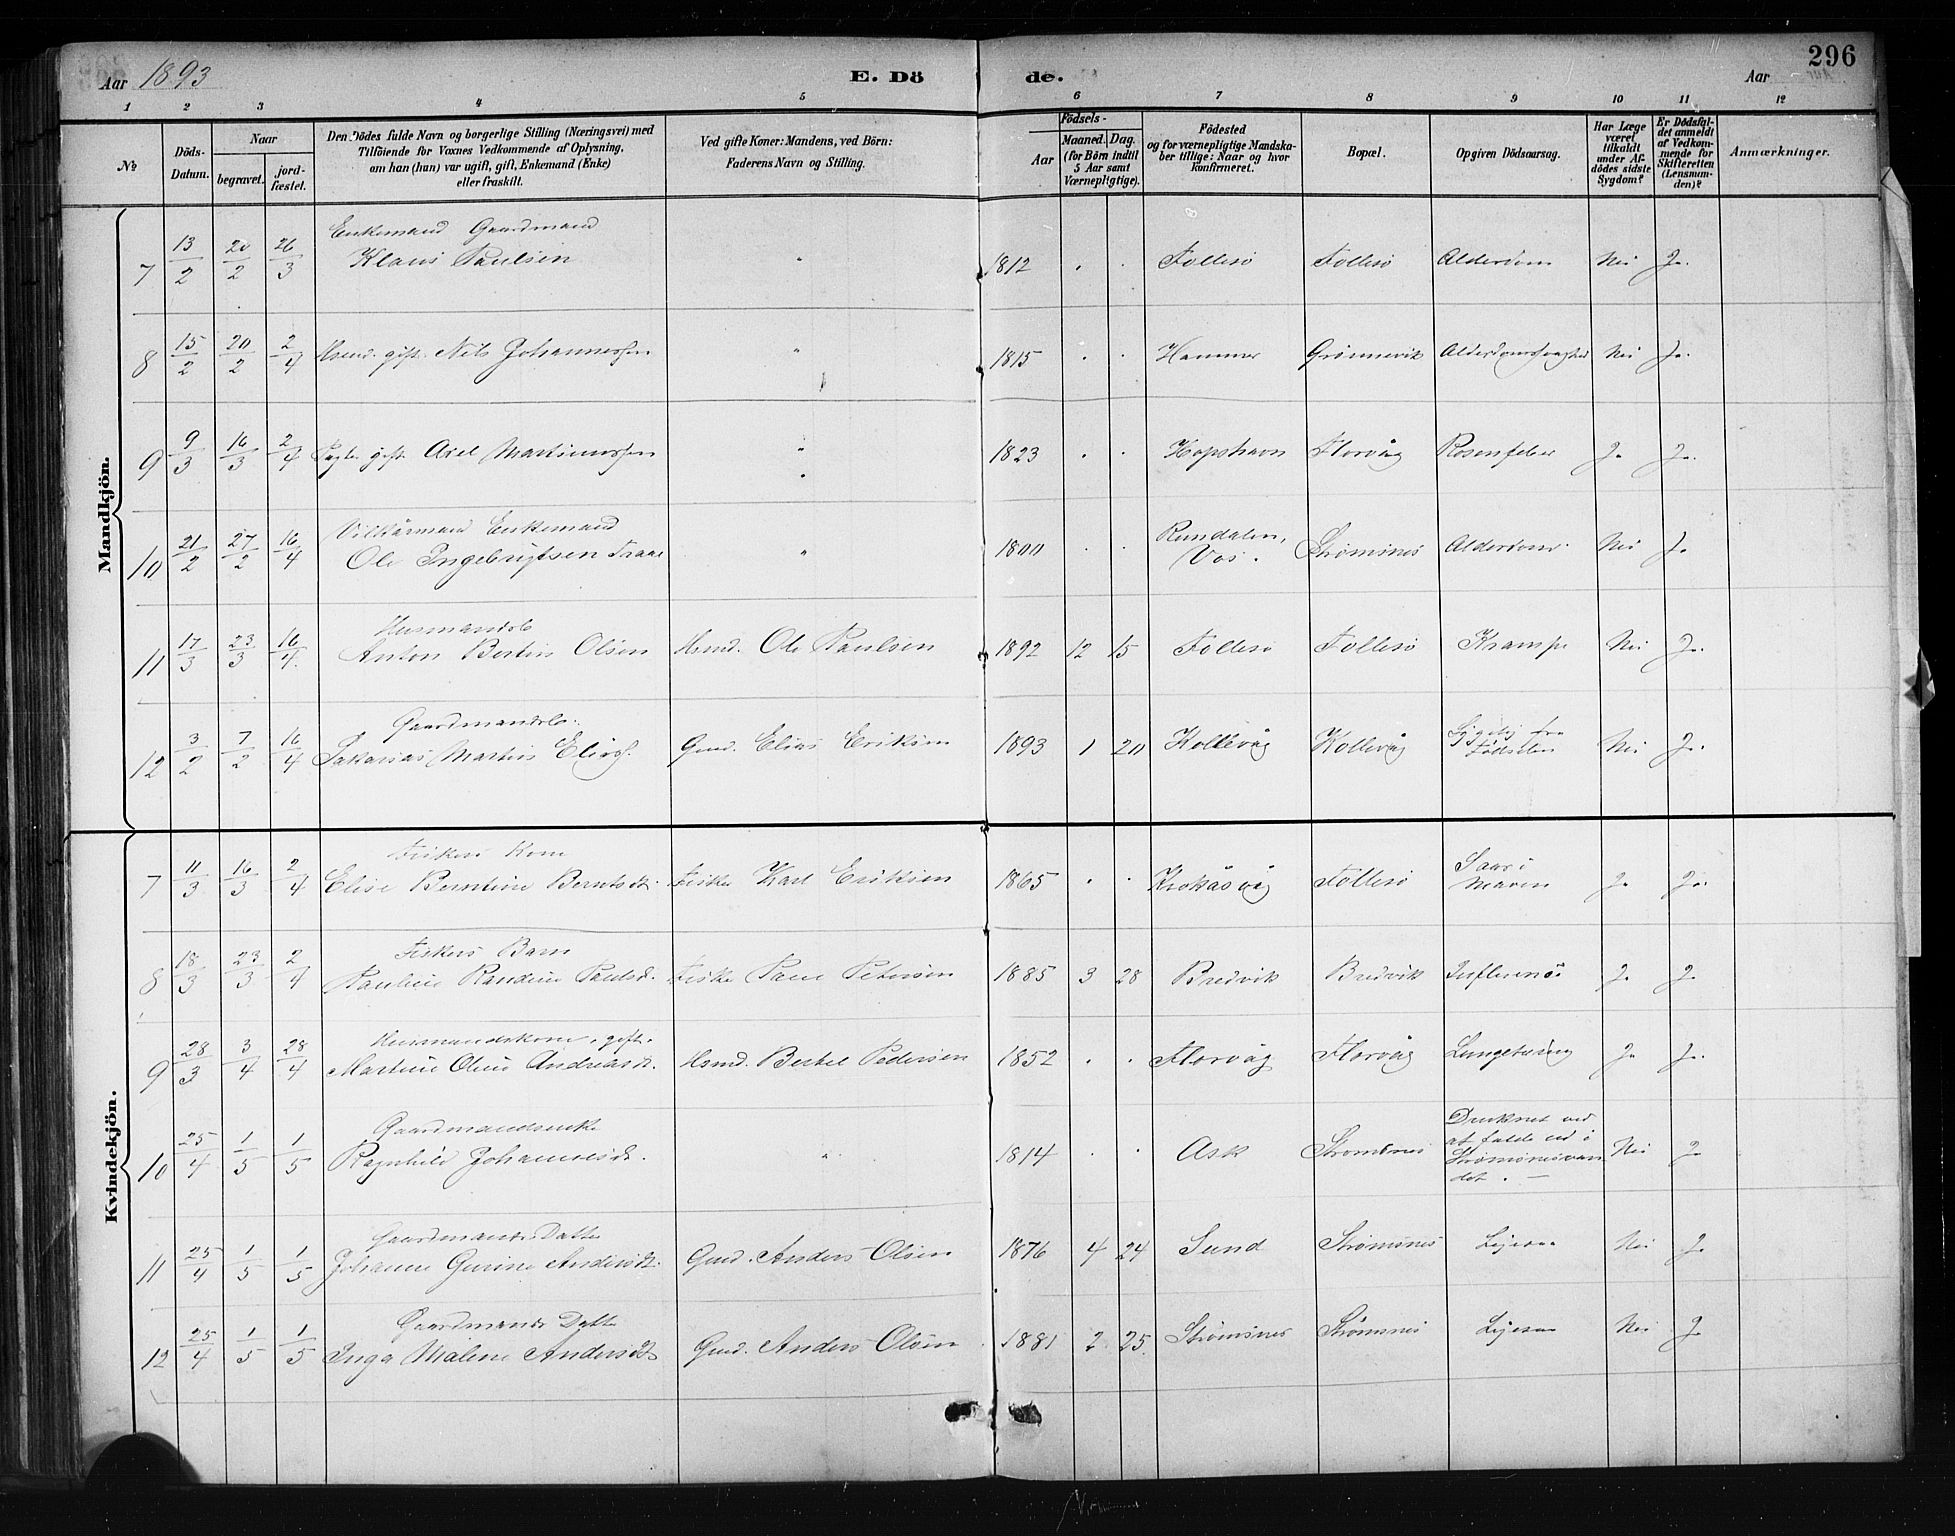 Aar 1893 E. Dö de. Aar 296
1 2 3 4 5 6 7 8 9 10 11 12
No Döds-Datum. Naar begravet. jord-fæstet. Den Dödes fulde Navn og borgerlige Stilling (Næringsvei) med Tilföiende for Voxnes Vedkommende af Oplysning, om han (hun) var ugift, gift, Enkemand (Enke) eller fraskilt. Ved gifte Koner: Mandens, ved Börn: Faderens Navn og Stilling. Födsels- Aar Maaned. Dag. (for Börn indtil 5 Aar samt Værnepligtige). Födested og for værnepligtige Mandskaber tillige: Naar og hvor konfirmeret. Bopæl. Opgiven Dödsaarsag. Har Læge været tilkaldt under Afdödes sidste Sygdom? Er Dödsfaldet anmeldt af Vedkommende for Skifteretten (Lensmanden)? Anmærkninger.
Mandkjön.
Enkemand Gaardmand
7 13/2 20/2 26/3 Klaus Paulsen " 1812 . . Follesö Follesö Alderdom Nei Ja.
8 15/2 20/2 2/4 Hsmd. gift. Nils Johannessen " 1815 . . Hammer Grönnevik Alderdomssvaghed Nei Ja.
9 9/3 16/3 2/4 gift. Axel Martinussen " 1823 . . Hopshavn Florvåg Rosenfeber Ja Ja.
Vilkårmand Enkemand
10 21/2 27/2 16/4 Ole Ingebrigtsen " 1800 . . Rundalen, Vos. Strömsnes Alderdom. Nei Ja
Husmandsb
11 17/3 23/3 16/4 Anton Bertin Olsen Hsmd. Ole Paulsen 1892 12 15 Follesö Follesö Krampe Nei Ja.
Gaardmandsb.
12 3/2 7/2 16/4 Sakarias Martin Elias. Gmd. Elias Eriksen 1893 1 20 Kollevåg Kollevåg Sygelig fra Födselen Nei Ja.
Kvindekjön.
Fiskers Kone
7 11/3 16/3 2/4 Elise Berntine Berntsdt. Fisker Karl Eriksen 1865 . . Krokåsvåg Follesö Saar i Maven Ja Ja.
Fiskers Barn
8 18/3 23/3 2/4 Pauline Randine Paulsd. Fisker Paul Petersen 1885 3 28 Bredvik Bredvik Influensa Ja Ja
Husmandskone, gift.
9 28/3 3/4 28/4 Martine Oline Andreasdt. Hsmd. Bertel Pedersen 1852 . . Florvåg Florvåg Lungetæring Ja Ja.
Gaardmandsenke
10 25/4 1/5 1/5 Ragnhild Johannesdt. " 1814 . . Ask Strömsnes Druknet ved at falde ud i Strömsnesvandet. Nei Ja
Gaardmands Datter
11 25/4 1/5 1/5 Johanne Gurine Andersdt. Gmd. Anders Olsen 1876 4 24 Sund Strömsnes Ligesaa Nei Ja
Gaardmands Datter
12 25/4 1/5 1/5 Inga Malene Andersdt Gmd. Anders Olsen 1881 2 25. Strömsnes Strömsnes Ligesaa Nei Ja